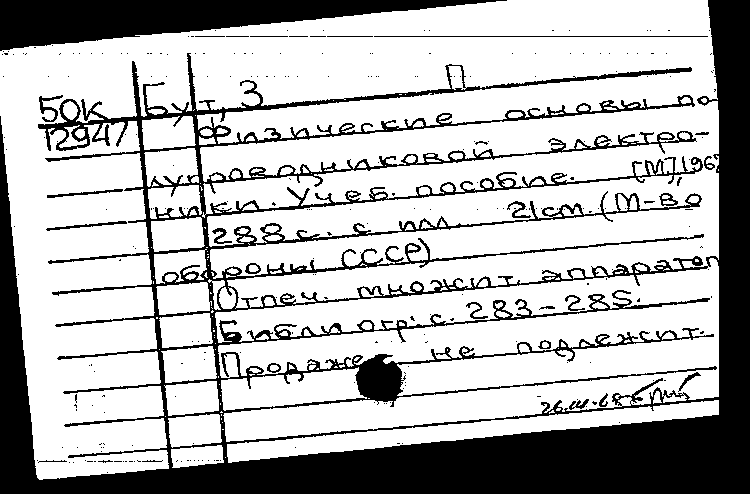 П
50К Бут, З
12947 Физические основы по-
лупроводниковой электро-
ники. Учеб. пособие. [М], 196
288 с. с илл. 21 см. (М-во
обороны СССР)
Отпеч. множит. аппаратом
Библиогр: с. 283-285.
Продаже не подлежит.